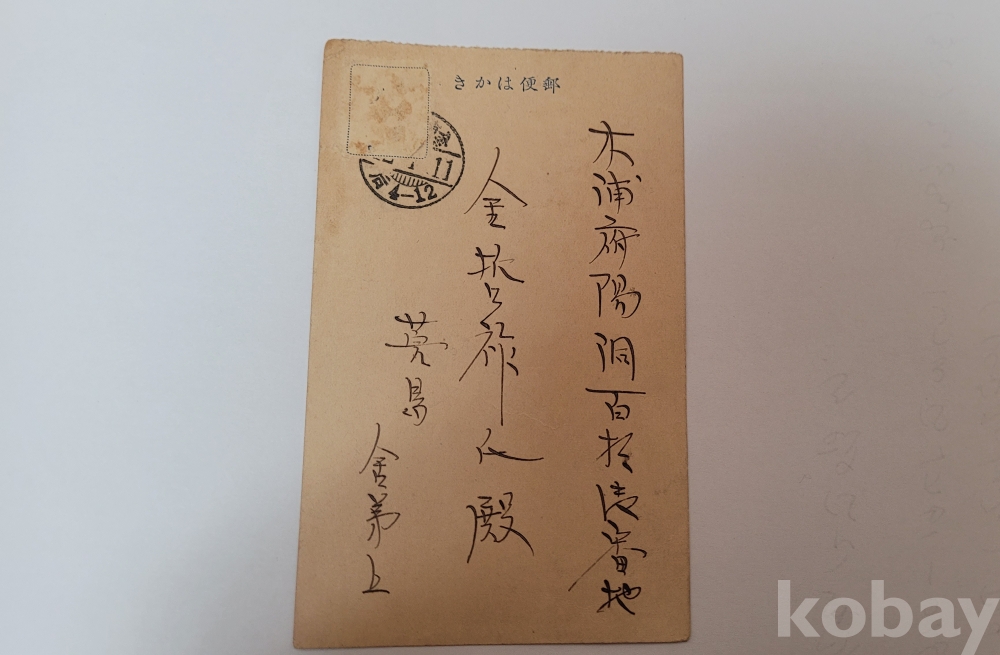 郵便はかき
木浦府陽洞百拾番地
金哲祚氏殿
莞島
舍弟上
11
4-12
kobay